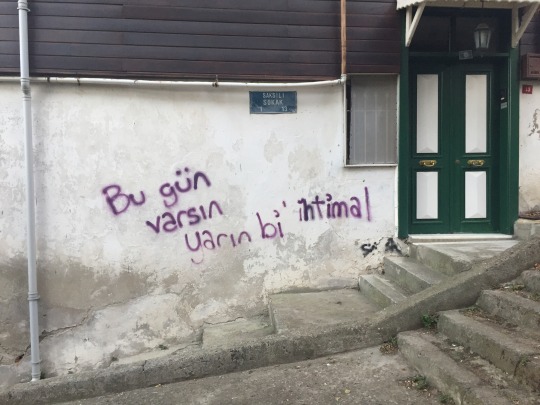 SAKSILI
SOKAK
Bu gün
varsın
yarın bi' ihtimal